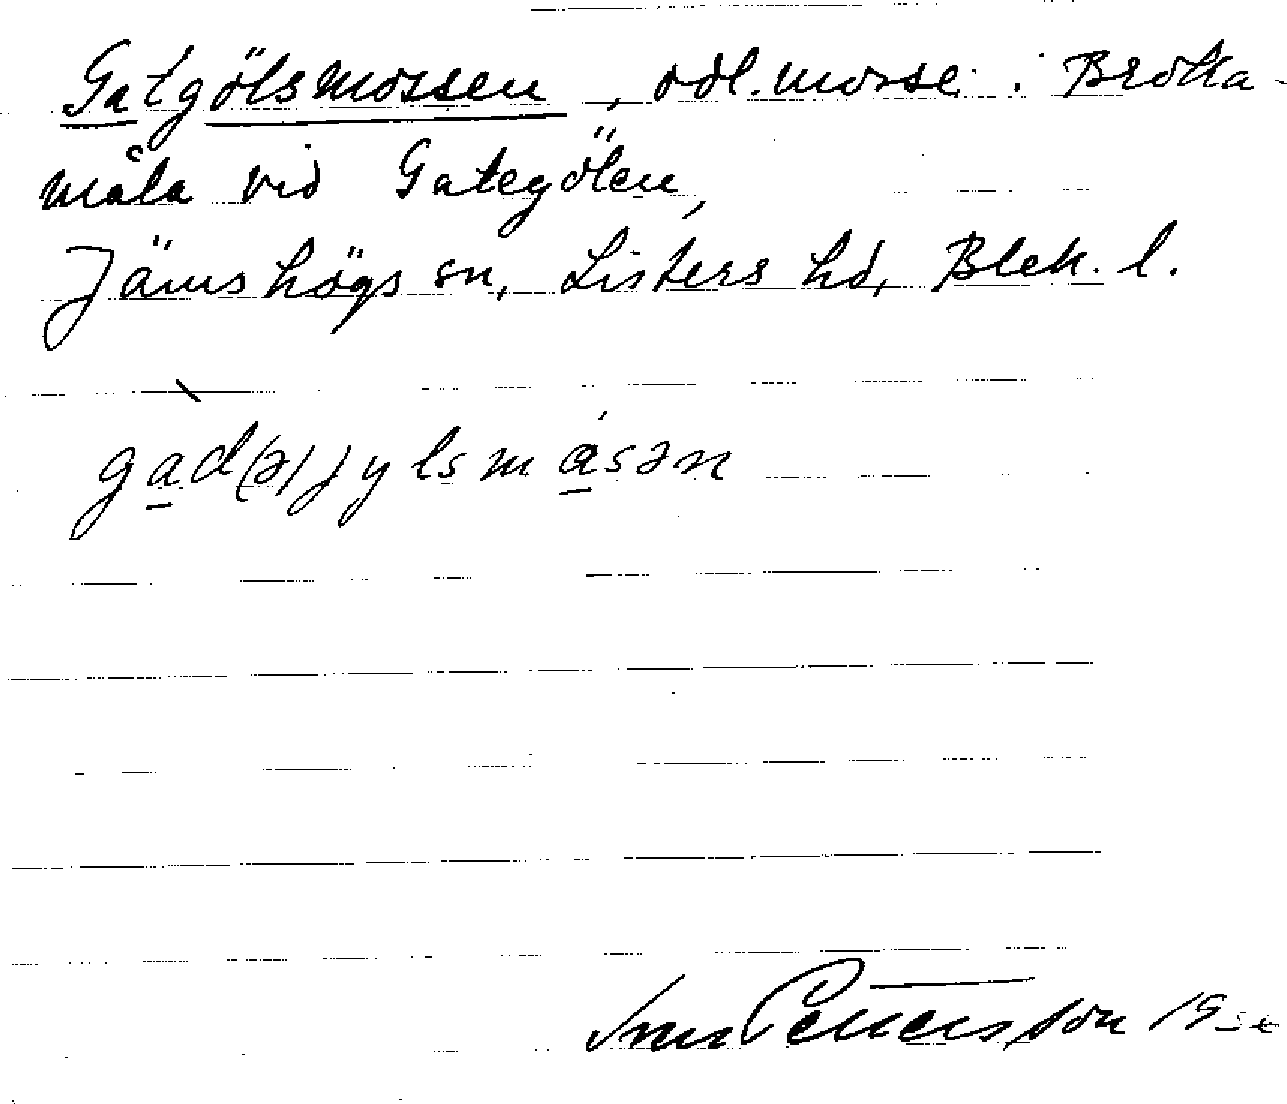 Gatgölsmossen, odl. mosse i Brotta-
måla vid Gategölen,
Jämshögs sn, Listers hd, Blek. l.
gad(ə)jylsmåsən
Pettersson 19